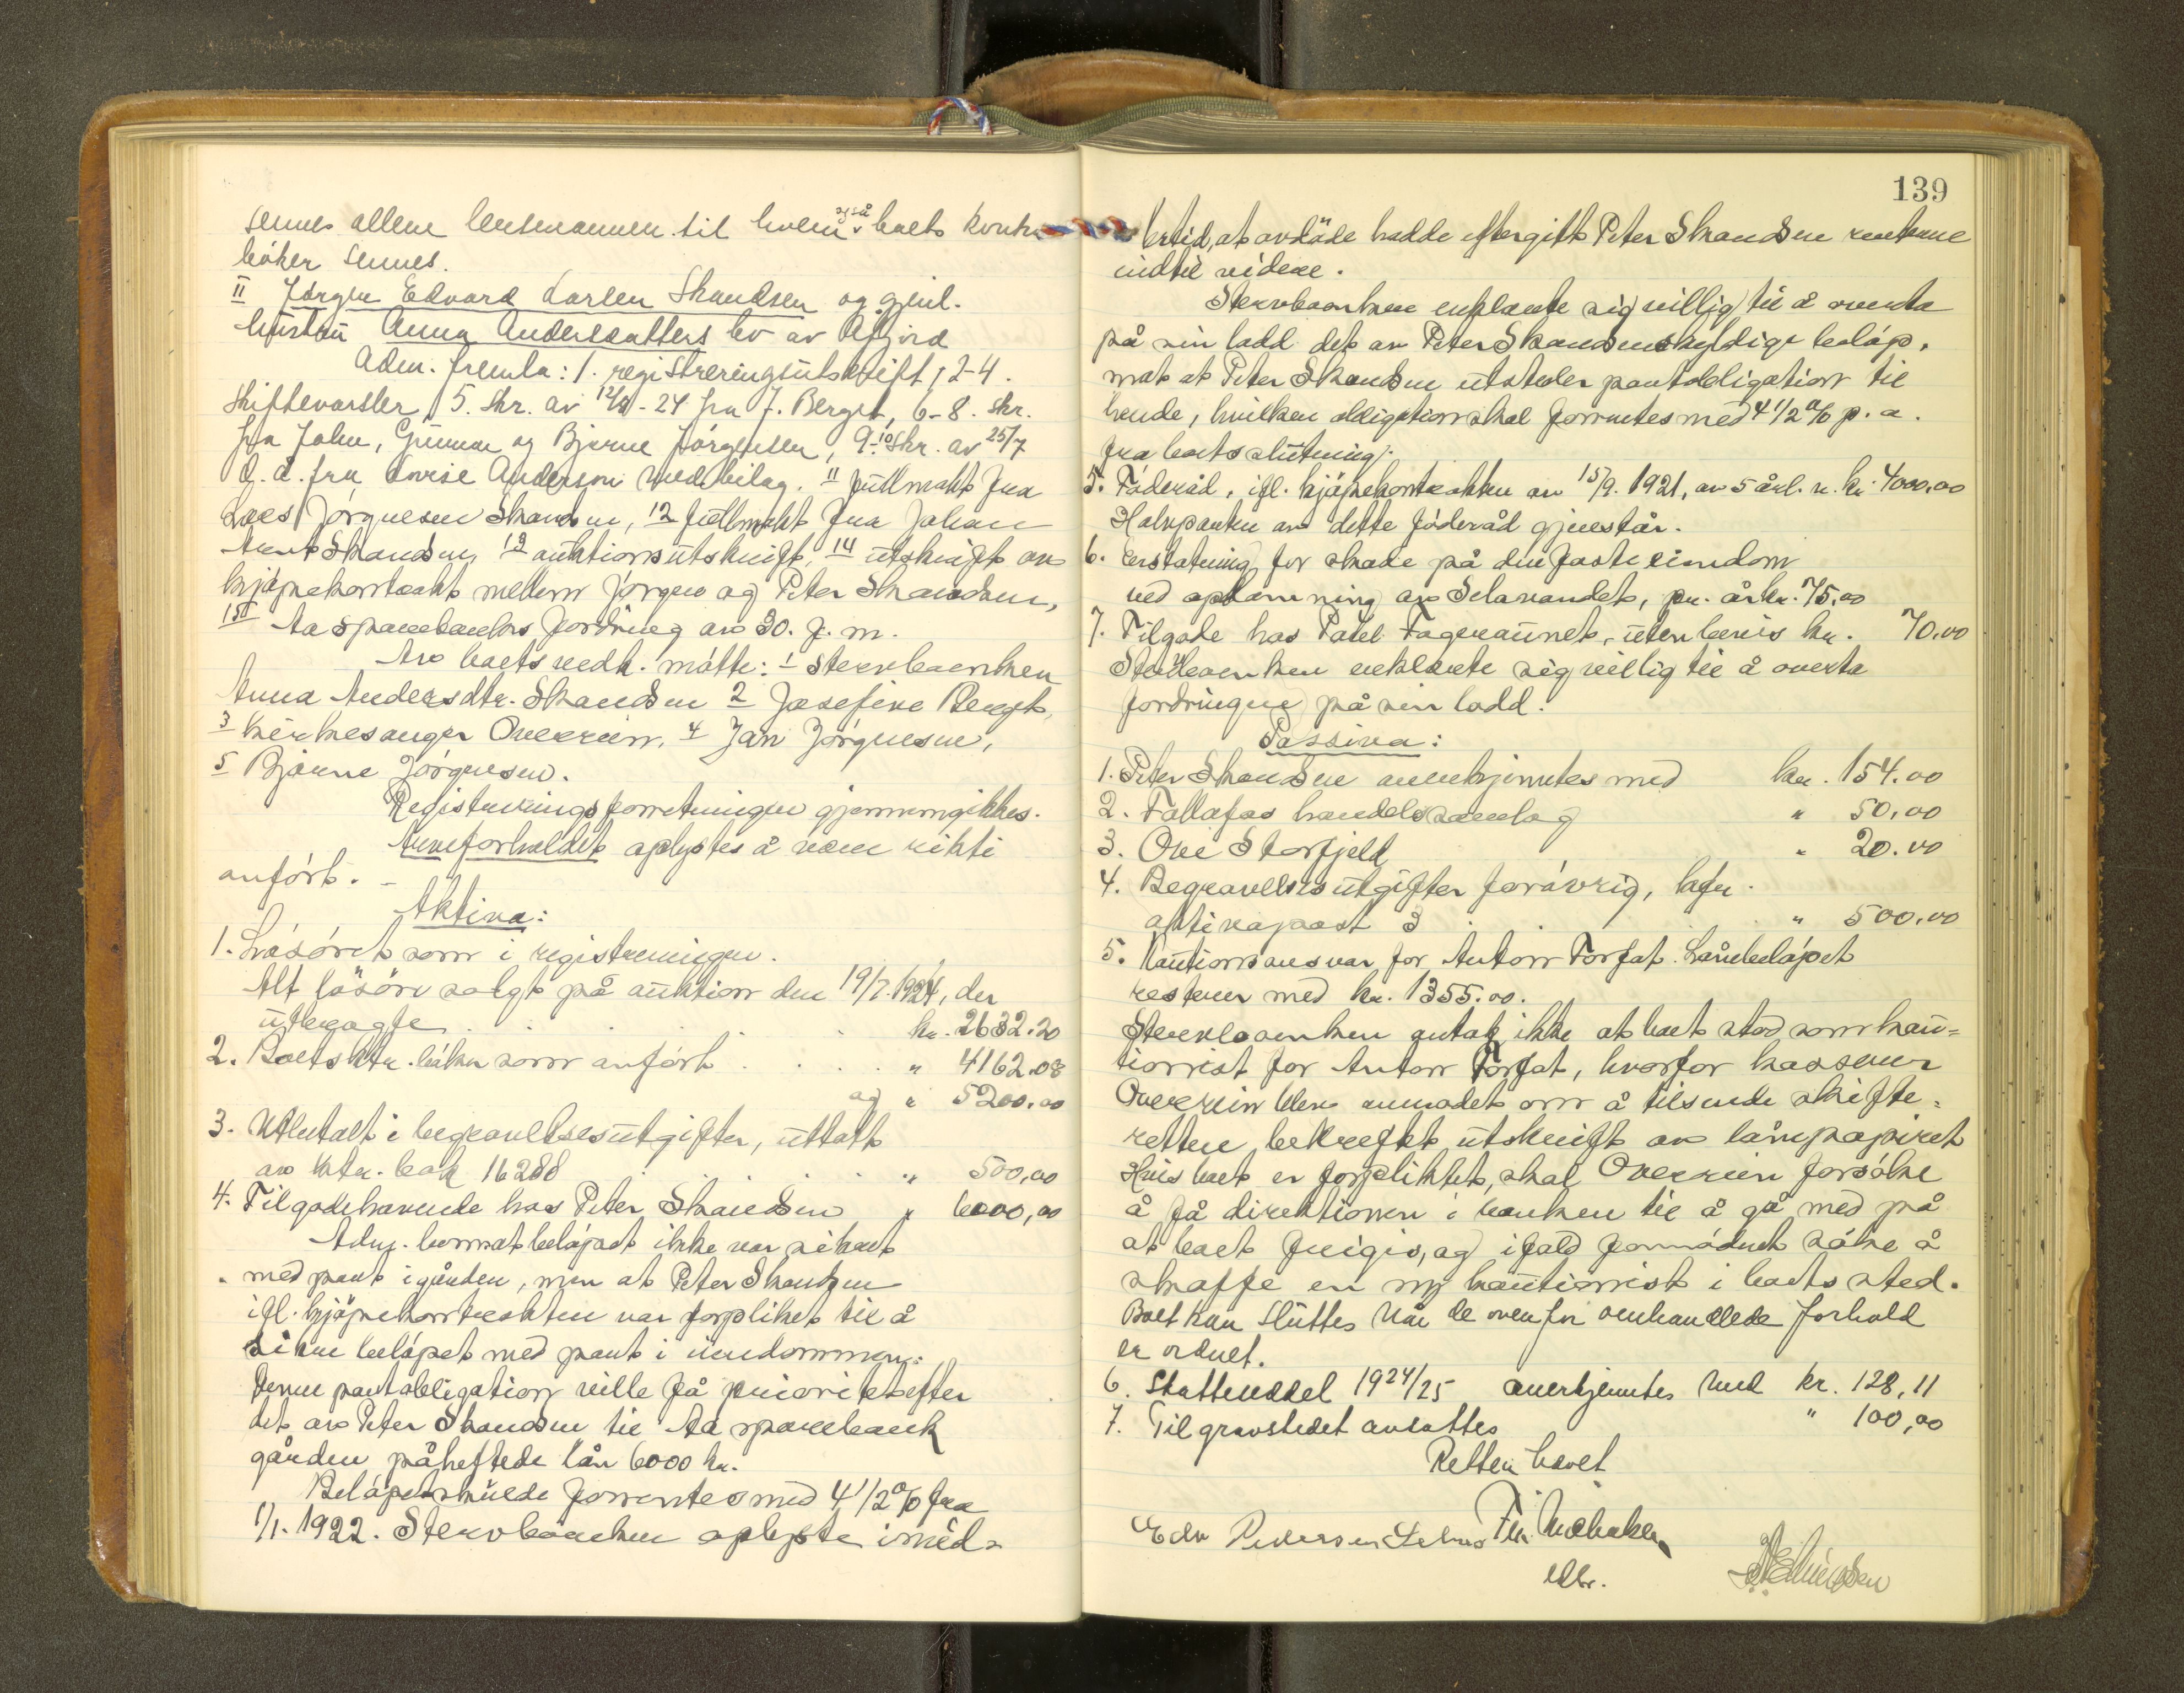 sendes allene lensmannen til hvem også boets kontra
bøker sendes.
II Jørgen Edvard Larsen Skandsen og gjenl.
hustru Anna Andersdatters bo av Åfjord
Adm. fremla: 1. registreringsutskrift, 2-4.
Skiftevarsler, 5. Skr. av 12/8-24 fra J. Berget, 6-8. skr.
fra John, Gunnar og Bjarne Jørgensen, 9-10 Skr. av 25/7
d.å. fra Lovise Anderson med bilag. 11 fullmakt fra
Lars Jørgensen Skandsen, 12 fullmakt fra Johan
Arnt Skandsen, 13 auktionsutskrift, 14 utskrift av
kjøpekontrakt mellem Jørgen og Peter Skandsen,
15 Aa sparebanks fordring av 30. f. m.
Av boets vedk. møtte: 1 Stervboenken
Anna Andersdtr. Skandsen 2 Josefine Berget,
3 kirkesanger Overrein, 4 Jan Jørgensen,
5 Bjarne Jørgensen.
Registreringsforretningen gjennemgikkes.
Arveforholdet oplystes å være rikti
anført. -
Aktiva:
1. Løsøret som i registreringen.
Alt løsøre solgt på auktion den 19/7. 1924, der
utbragte . . . kr. 2632.20
2. Boets ktr. bøker som anført . . . . " 4162.08
og " 5200.00
3. Utbetalt i begravelsesutgifter, uttatt
av ktr. bok 16288 . . . " 500,00
4. Tilgodehavende hos Peter Skandsen " 6000,00
Adm. bemerket beløpet ikke var sikret
med pant i gården, men at Peter Skandsen
ifl. kjøpekontrakten var forpliktet til å
sikre beløpet med pant i eiendommen.
Denne pantobligation ville få prioritet efter
det av Peter Skandsen til Aa sparebank
gården påheftede lån 6000 kr.
Beløpet skulde forrentes med 4 1/2 % fra
1/1. 1922. Stervboenken oplyste imid-
139
lertid, at avdøde hadde eftergitt Peter Skandsen rentene
indtil videre.
Stervboenken erklærte sig villig til å overta
på sin lodd det av Peter Skandsen skyldige beløp,
mot at Peter Skandsen utsteder pantobligation til
hende, hvilken obligation skal forrentes med 4 1/2 % p. a.
fra boets slutning.
5. Føderåd, ifl. kjøpekontrakten av 15/9. 1921, av 5 årl. v. kr. 4000,00
Halvparten av dette føderåd gjenstår.
6. Erstatning for skade på den faste eiendom
ved opdæmning av Selavandet, pr. år kr. 75,00
7. Tilgode hos Paul Fageraunet, uten bevis kr. 70,00
Stervboenken erklærte sig villig til å overta
fordringene på sin lodd.
Passiva:
1. Peter Skandsen anerkjentes med kr. 154.00
2. Tallafos handelssamlag " 50,00
3. Ove Storfjeld " 20.00
4. Begravelsesutgifter forøvrig, kfr.
aktivapost 3 . . . " 500.00
5. Kautionsansvar for Anton Torfat. Lånebeløpet
resterer med kr. 1355.00.
Stervboenken antok ikke at boet stod som kau=
tionist for Anton Torfat, hvorfor kasserer
Overrein blev anmodet om å tilsende skifte=
retten bekreftet utskrift av lånepapiret
Hvis boet er forpliktet, skal Overrein forsøke
å få direktionen i banken til å gå med på
at boet frigis, og ifald fornødent søke å
skaffe en ny kautionist i boets sted.
Boet kan sluttes når de ovenfor omhandlede forhold
er ordnet.
6. Skatteseddel 1924/25 anerkjentes med kr. 128,11
7. Til gravstedet avsattes " 100,00
Retten hevet
Edv Pedersen